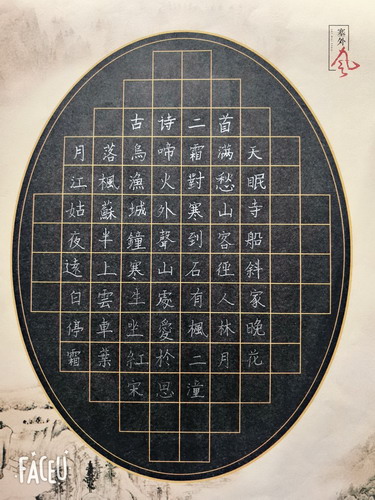 塞外
风
古诗二首
月落烏啼霜满天
江楓漁火對愁眠
姑蘇城外寒山寺
夜半鐘聲到客船
遠上寒山石徑斜
白雲生處有人家
停車坐愛楓林晚
霜葉紅於二月花
宋思潼
FACEU